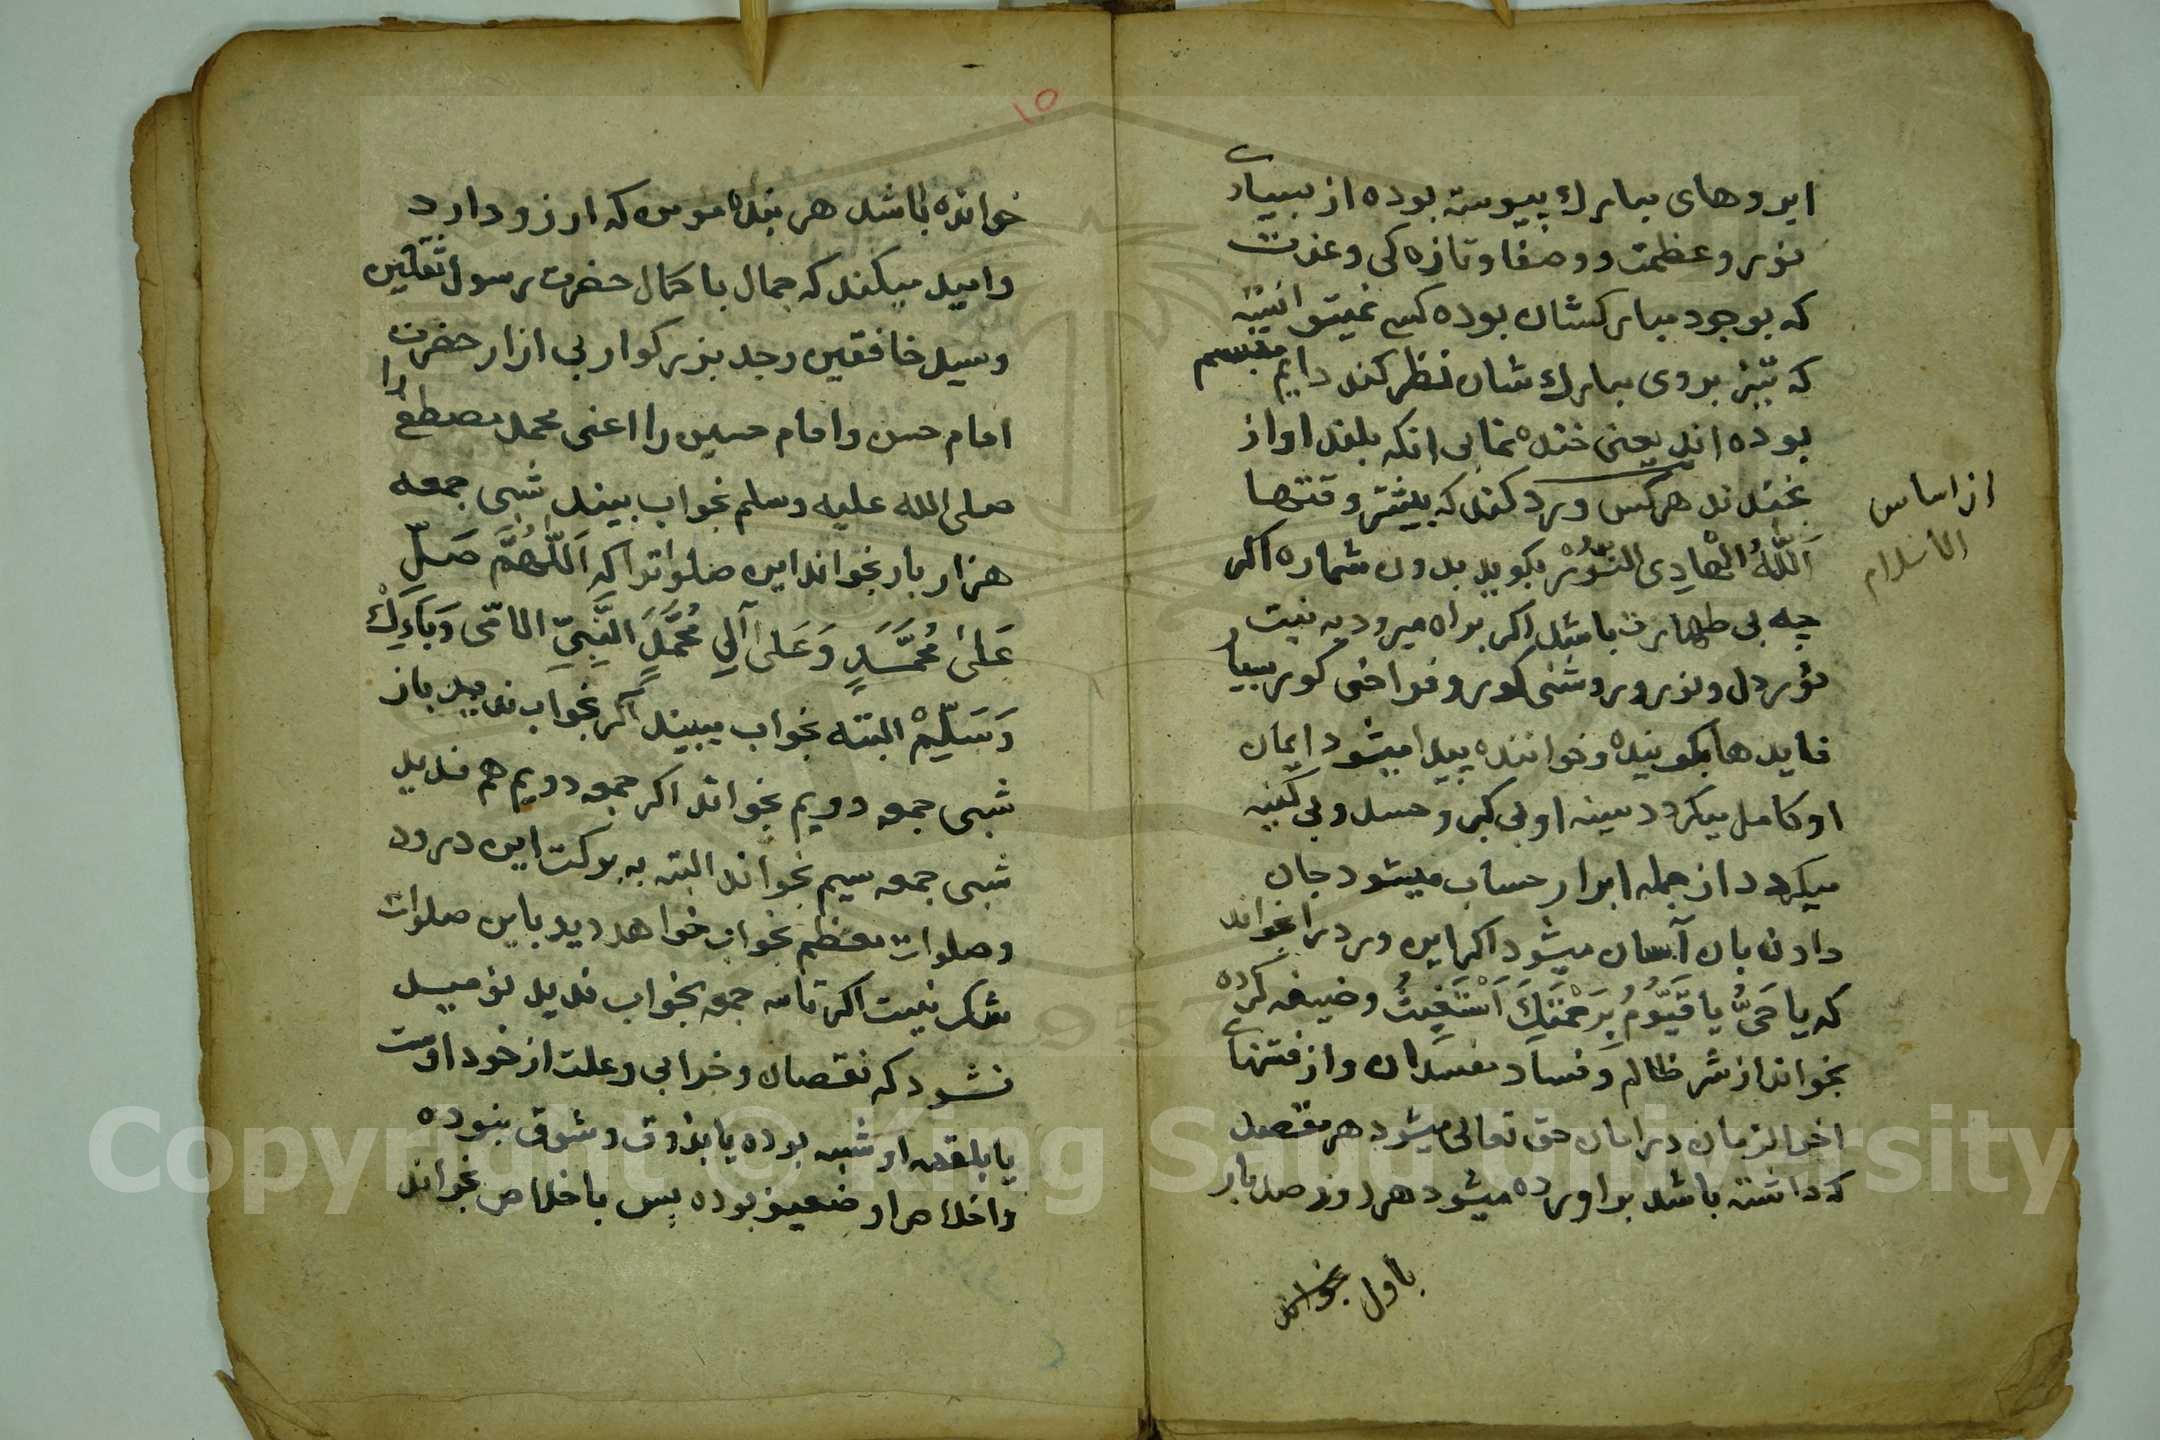 ابروهای مبارك پیوسته بوده از بسیاری
نور و عظمت و وصفا و تازه کی و عزت
که بوجود مبارکشان بوده کسی نمیتوانیته
که تیز بروی مبارك شان نظر کند دایم متبسم
بوده اند یعنی خنده نمایی انکه بلند اواز
بخندند هر کس ورد کند که بیشتر وقتها
اَللّٰهُ الْهَادِی النُّوْرُ بکوید بدون شماره اکر
چه بی طهارت باشد اکر براه میرود به نیت
نور دل و نور و روشنی کور و فراخی کور بسیار
فایدها بکوینده و خواننده پیدا میشود ایمان
او کامل میکردد سینه او بی کبر و حسد و بی کینه
میکردد از جمله ابرار حساب میشود جان
دادن بان آسان میشود اکر این ورد را بخواند
که یا حَیُّ یا قَیُّوْمُ بِرَحْمَتِكَ اَسْتَغِیْثُ وضیفه کرده
بخواند از شر ظالم و فساد مفسدان و از فتنهای
اخر الزمان در امان حق تعالی میشود هر مقصد
که داشته باشد براورده میشود هر روز صد بار
باول بخواند
از اساس
الاسلام
١٥
خوانده باشد هر بنده مومن که ارزو دارد
و امید میکند که جمال با کمال حضرت رسول ثقلین
و سید خافقین و جد بزرکوار بی ازار حضرت
امام حسن و امام حسین را اعنی محمد مصطفی را
صلی الله علیه وسلم بخواب بیند شبی جمعه
هزار بار بخواند این صلواترا که اَللّٰهُمَّ صَلِّ
عَلیٰ مُحَمَّدٍ وَعَلیٰ آلِ مُحَمَّدٍ النَّبِیِّ الامّی وَبَارِكْ
وَسَلِّمْ البته بخواب میبیند اکر بخواب ندید باز
شبی جمعه دویم بخواند اکر جمعه دویم هم ندید
شبی جمعه سیم بخواند البته به برکت این درود
و صلوات معظم بخواب خواهد دید باین صلوات
شکر نیت اکر تا سه جمعه بخواب ندید نومید
نشود که نقصان و خرابی و علت از خود اوست
یا بلقمه او شبه بوده یا بذوق و شوق نبوده
و اخلاص او ضعیف بوده پس با خلاص بخواند
Copyright © King Saud University
1957